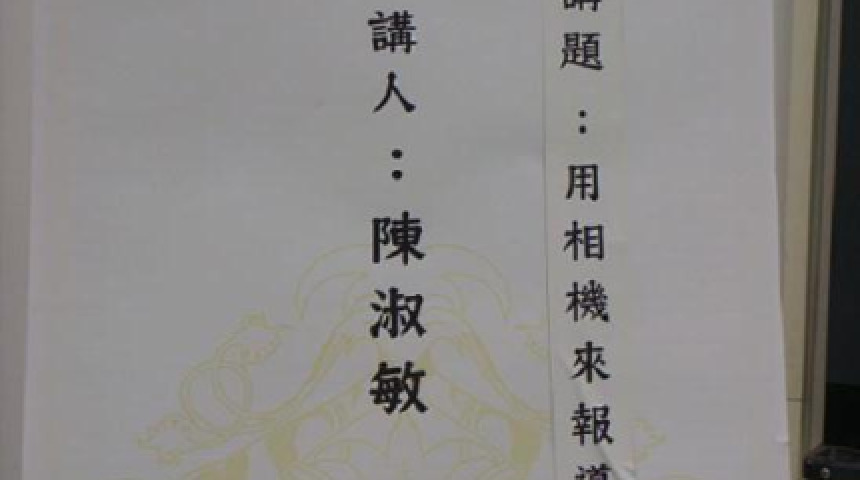 講題：用相機來報導
講人：陳淑敏